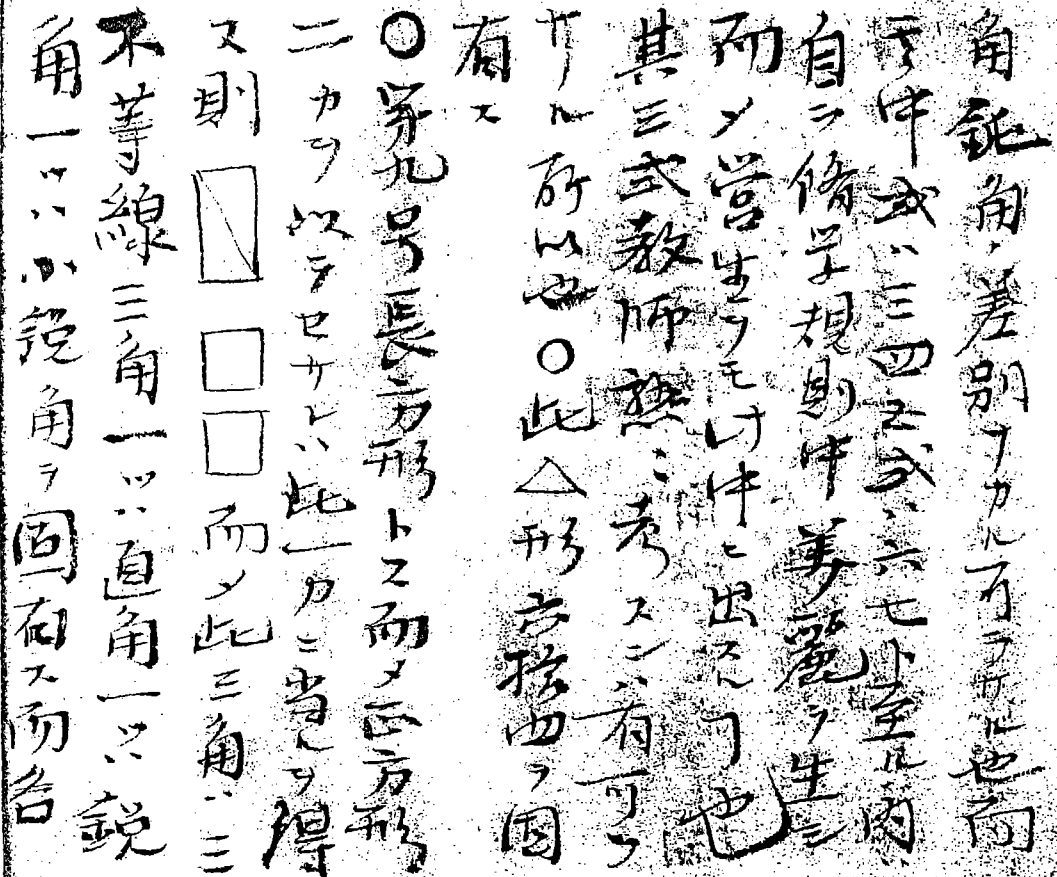 角鈍角ノ差別ナカル可ラサル也而
シテ中或ハ三四五或ハ六七ト至ル内ハ
自ラ脩学規則中美麗ヲ生シ
而メ営生ヲモ此中ヒ出スル可也
其三式教師熟ニ考スンハ有可ラ
サル所以也〇此△形六推四ヲ固
有ス
〇第九号長方形トス而メ正方形
二カヲ以テセサレハ此一カニ当ルヲ得
ス則 而メ此三角ハ三
不等線三角一ツハ直角一ツハ鋭
角一ツハ小鋭角ヲ固有ス而各